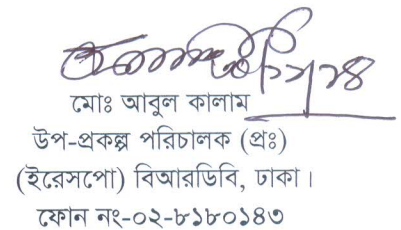 মোঃ আবুল কালাম
উপ-প্রকল্প পরিচালক (প্রঃ)
(ইরেসপো) বিআরডিবি, ঢাকা।
ফোন নং-০২-৮১৮০১৪৩